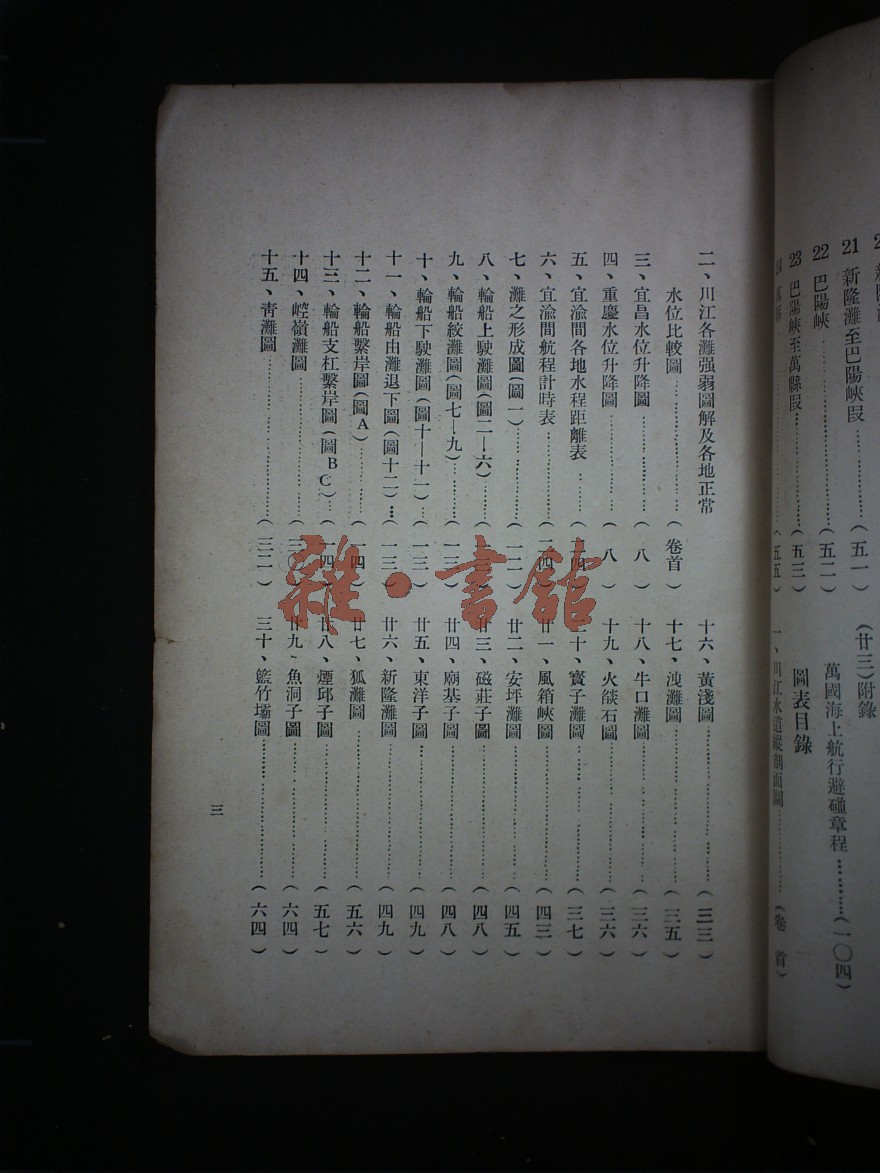 21 新隆灘至巴陽峽段 (五一)
22 巴陽峽 (五二)
23 巴陽峽至萬縣段 (五三)
(五五)
(廿三)附錄
萬國海上航行避碰章程 (一〇四)
圖表目錄
一、川江水道縱剖面圖 (卷首)
二、川江各灘强弱圖解及各地正常
水位比較圖 (卷首)
三、宜昌水位升降圖 (八)
四、重慶水位升降圖 (八)
五、宜渝間各地水程距離表
六、宜渝間航程計時表
七、灘之形成圖(圖一) (一二)
八、輪船上駛灘圖(圖二—六)
九、輪船絞灘圖(圖七—九)
十、輪船下駛灘圖(圖十—十一) (一三)
十一、輪船由灘退下圖(圖十二) (一三)
十二、輪船繫岸圖(圖A) (一四)
十三、輪船支杠繫岸圖(圖BC) (一四)
十四、崆嶺灘圖 (三〇)
十五、靑灘圖 (三二)
十六、黃淺圖 (三三)
十七、洩灘圖 (三五)
十八、牛口灘圖 (三六)
十九、火燄石圖 (三六)
二十、寳子灘圖 (三七)
廿一、風箱峽圖 (四三)
廿二、安坪灘圖 (四五)
廿三、磁莊子圖 (四八)
廿四、廟基子圖 (四八)
廿五、東洋子圖 (四九)
廿六、新隆灘圖 (四九)
廿七、狐灘圖 (五六)
廿八、煙邱子圖 (五七)
廿九、魚洞子圖 (六四)
三十、籃竹壩圖 (六四)
三
雜·書舘